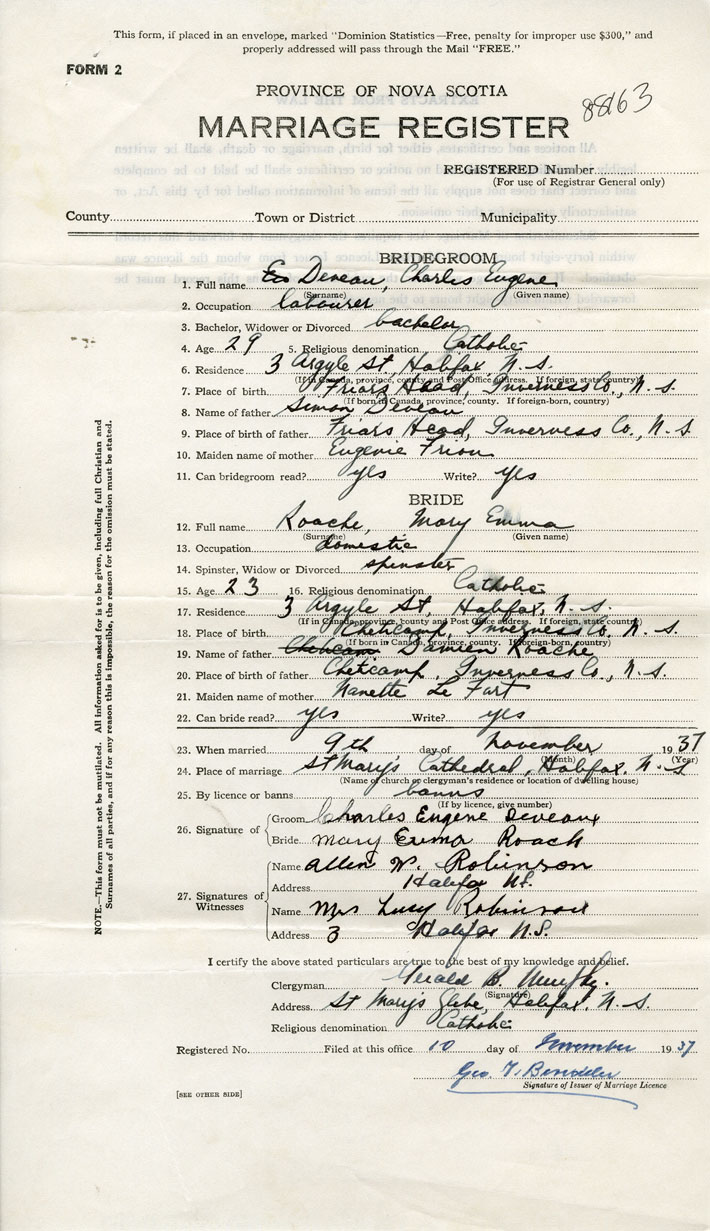 This form, if placed in an envelope, marked "Dominion Statistics—Free, penalty for improper use $300," and
properly addressed will pass through the Mail "FREE."
FORM 2
PROVINCE OF NOVA SCOTIA
88163
MARRIAGE REGISTER
REGISTERED Number
(For use of Registrar General only)
County Town or District Municipality
BRIDEGROOM
1. Full name Deveau, Charles Eugene
(Surname) (Given name)
2. Occupation labourer
3. Bachelor, Widower or Divorced bachelor
4. Age 29 5. Religious denomination Catholic
6. Residence 3 Argyle St, Halifax, N.S.
(If in Canada, province, county and Post Office address. If foreign, state country)
7. Place of birth Friars Head, Inverness Co., N.S.
(If born in Canada, province, county. If foreign-born, country)
8. Name of father Simon Deveau
9. Place of birth of father Friars Head, Inverness Co., N.S
10. Maiden name of mother Eugenie
11. Can bridegroom read? yes Write? yes
BRIDE
12. Full name Roache, Mary Emma
(Surname) (Given name)
13. Occupation domestic
14. Spinster, Widow or Divorced spinster
15. Age 23 16. Religious denomination Catholic
17. Residence 3 Argyle St, Halifax, N.S.
(If in Canada, province, county and Post Office address. If foreign, state country)
18. Place of birth Chetcamp, Inverness Co., N.S.
(If born in Canada, province, county. If foreign-born, country)
19. Name of father Damien Roache
20. Place of birth of father Chetcamp, Inverness Co., N.S.
21. Maiden name of mother Nanette Le Fart
22. Can bride read? yes Write? yes
23. When married 9th day of November 1937
(Month) (Year)
24. Place of marriage St Mary's Cathedral, Halifax, N.S
(Name of church or clergyman's residence or location of dwelling house)
25. By licence or banns banns
(If by licence, give number)
26. Signature of Groom Charles Eugene Deveaux
Bride Mary Emma Roach
27. Signatures of Witnesses Name Allen W. Robinson
Address Halifax N.S.
Name Mrs Lucy Robinson
Address 3 Halifax N.S.
I certify the above stated particulars are true to the best of my knowledge and belief.
Clergyman Gerald B. Murphy.
(Signature)
Address St Mary's Glebe, Halifax, N.S.
Religious denomination Catholic
Registered No. Filed at this office 10 day of November 1937
Geo. T.
Signature of Issuer of Marriage Licence
[SEE OTHER SIDE]
NOTE.—This form must not be mutilated. All information asked for is to be given, including full Christian and
Surnames of all parties, and if for any reason this is impossible, the reason for the omission must be stated.